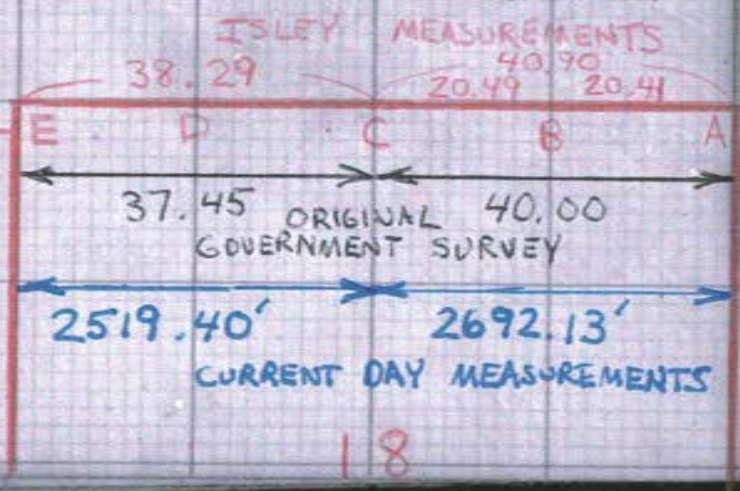 ISLEY MEASUREMENTS
38.29 40.90
20.49 20.41
E D C B A
37.45 ORIGINAL 40.00
GOVERNMENT SURVEY
2519.40' 2692.13'
CURRENT DAY MEASUREMENTS
18